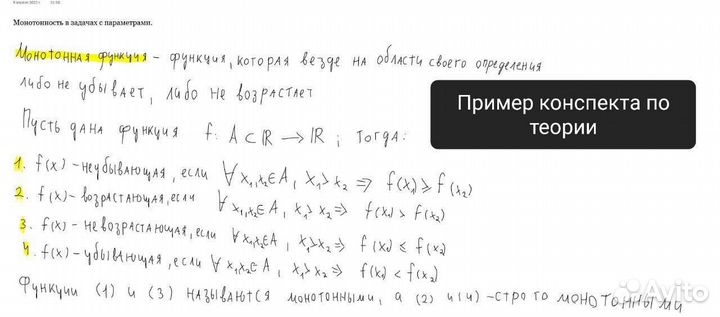 9 апреля 2023 г.
Монотонность в задачах с параметрами.
Монотонная функция - функция, которая везде на области своего определения
либо не убывает, либо не возрастает
Пример конспекта по
теории
Пусть дана функция f: A⊂ℝ → ℝ ; тогда:
1. f(x) - неубывающая, если ∀x₁,x₂∈A, x₁>x₂ ⇒ f(x₁)≥f(x₂)
2. f(x) - возрастающая, если ∀x₁,x₂∈A, x₁>x₂ ⇒ f(x₁)>f(x₂)
3. f(x) - невозрастающая, если ∀x₁,x₂∈A, x₁>x₂ ⇒ f(x₁)≤f(x₂)
4. f(x) - убывающая, если ∀x₁,x₂∈A, x₁>x₂ ⇒ f(x₁)<f(x₂)
Функции (1) и (3) называются монотонными, а (2) и (4) - строго монотонными
Avito